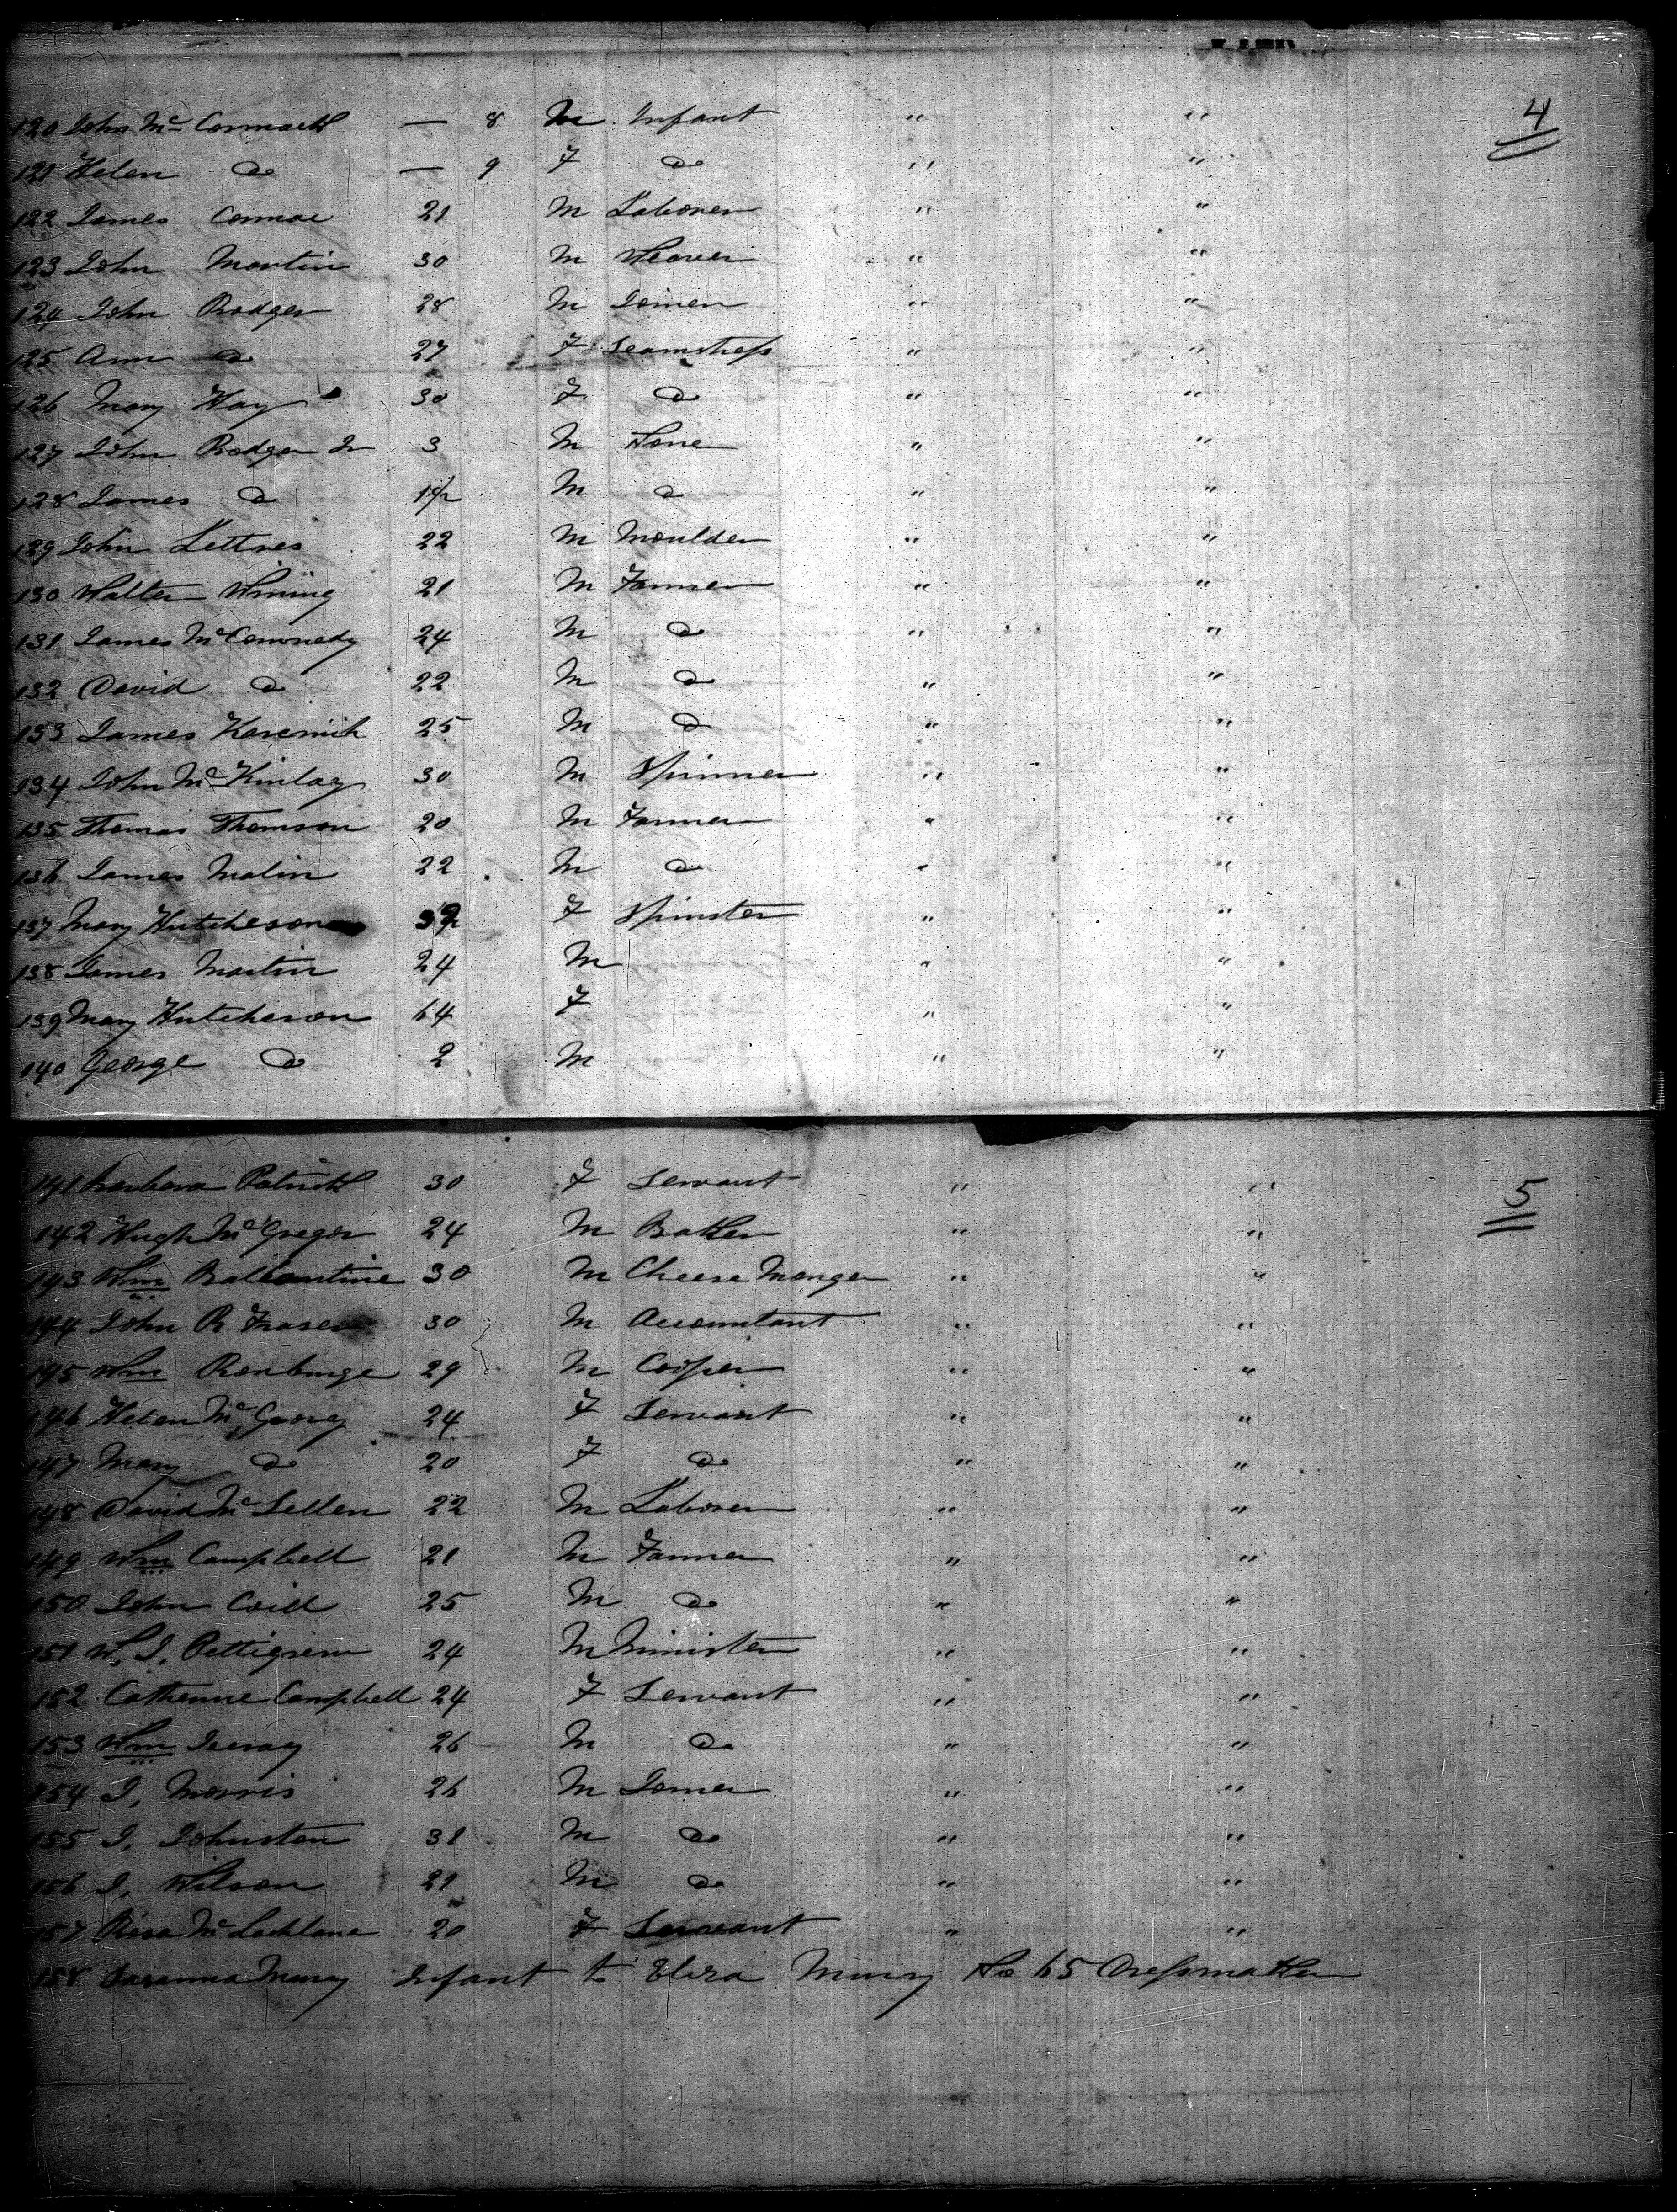 4
120 John Mc Cormack — 8 M Infant " "
121 Helen do — 9 F do " "
122 James Cormac 21 M Laborer " "
123 John Martin 30 M Weaver " "
124 John Rodger 28 M Joiner " "
125 Ann do 27 F Seamstress " "
126 Mary Hay 30 F do " "
127 John Rodger Jr 3 M None " "
128 James do 1½ M do " "
129 John 22 M Moulder " "
130 Walter Wining 21 M Farmer " "
131 James 24 M do " "
132 David do 22 M do " "
133 James 25 M do " "
134 John Mc Kinlay 30 M Spinner " "
135 Thomas Thomson 20 M Farmer " "
136 James Malin 22 M do " "
137 Mary Hutcheson F Spinster " "
138 James Martin 24 M " "
139 Mary Hutcheson 64 F " "
140 George do 2 M " "
5
141 Barbara Patrick 30 F Servant " "
142 Hugh Mc Gregor 24 M Baker " "
143 Wm Ballantine 30 M Cheese Monger " "
144 John R Fraser 30 M Accountant " "
145 Wm 29 M Cooper " "
146 Helen Mc 24 F Servant " "
147 Mary do 20 F do " "
148 David Mc Lellen 22 M Laborer " "
149 Wm Campbell 21 M Farmer " "
150 John 25 M do " "
151 W. J. Pettigrew 24 M Minister " "
152 Catherine Campbell 24 F Servant " "
153 Wm 26 M do " "
154 J. Morris 26 M Joiner " "
155 J. Johnston 31 M do " "
156 J. Wilson 21 M do " "
157 Rosa Mc Lachlane 20 F Servant " "
158 Susanna Infant to Eliza No 65 Dressmaker